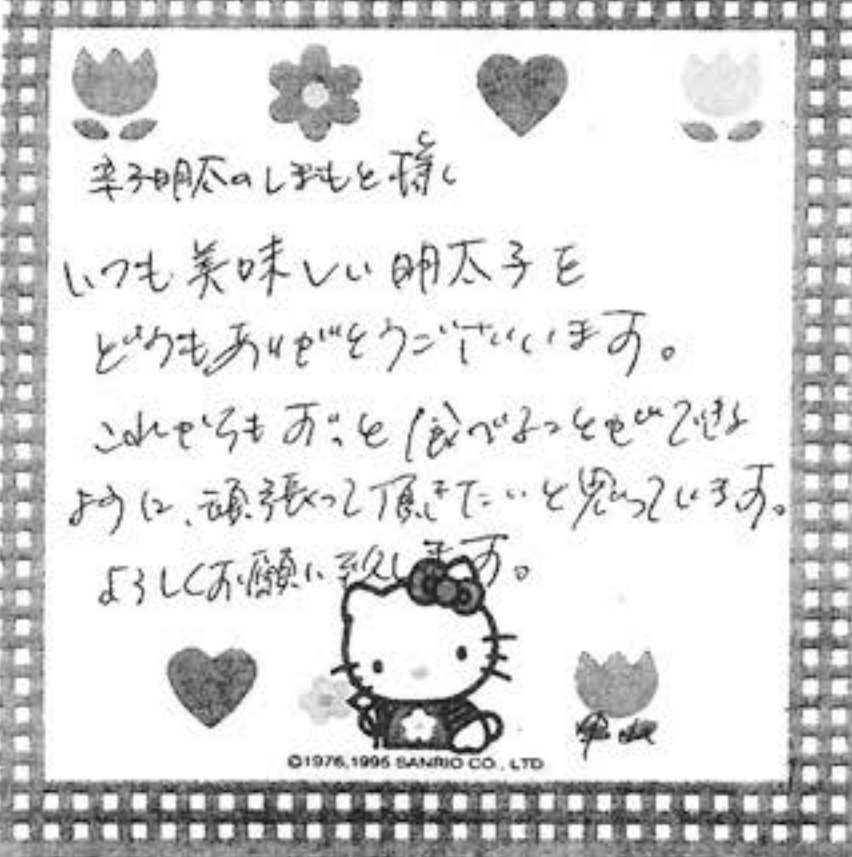 辛子明太のしまもと様へ
いつも美味しい明太子を
どうもありがとうございます。
これからもずっと食べることができる
ように、頑張って頂きたいと思っています。
よろしくお願い致します。
©1976,1995 SANRIO CO., LTD.